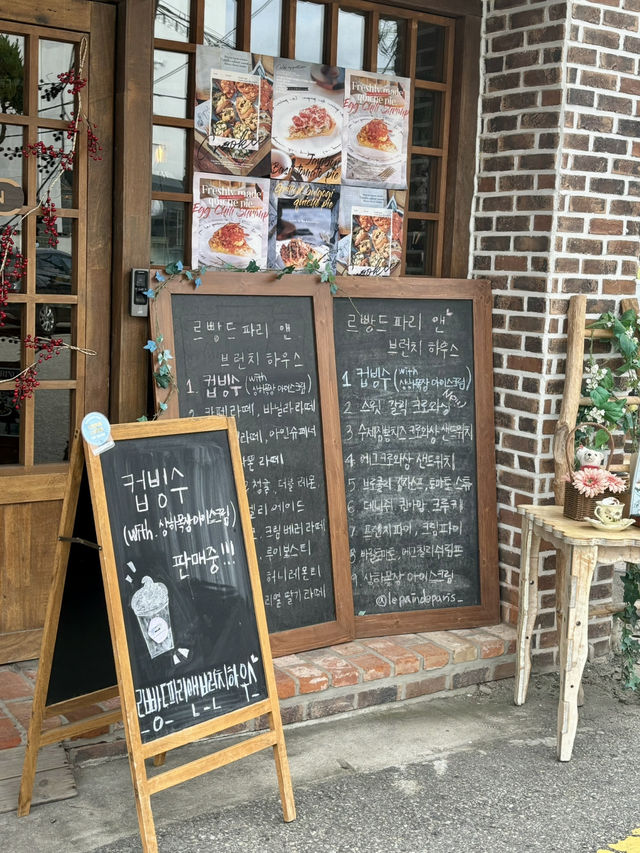 Freshly made
quiche pie
Egg Chili Shrimp
Freshly made
quiche pie
Egg Chili Shrimp
quiche pie
르빵드 파리 앤
브런치 하우스
1. 컵빙수 (with 상하목장 아이스크림)
카페라떼, 바닐라 라떼
라떼, 아인슈페너
라떼
더블 레몬
에이드
크림 베리 라떼
루이보스티
허니레몬티
리얼 딸기 라떼
르빵드 파리 앤
브런치 하우스
1 컵빙수 (with 상하목장 아이스크림)
2 스윗 갈릭 크로와상 New
3 수제잠봉치즈 크로와상 샌드위치
4 에그크로와상 샌드위치
5 브로콜리 토마토 스튜
6 데니쉬, 퀸아망, 크루키
7 프렌치파이, 크림파이
8 에그칠리쉬림프
9 상하목장 아이스크림
@lepaindeparis_
컵빙수
(with 상하목장아이스크림)
판매중!!!
르빵드파리앤브런치하우스